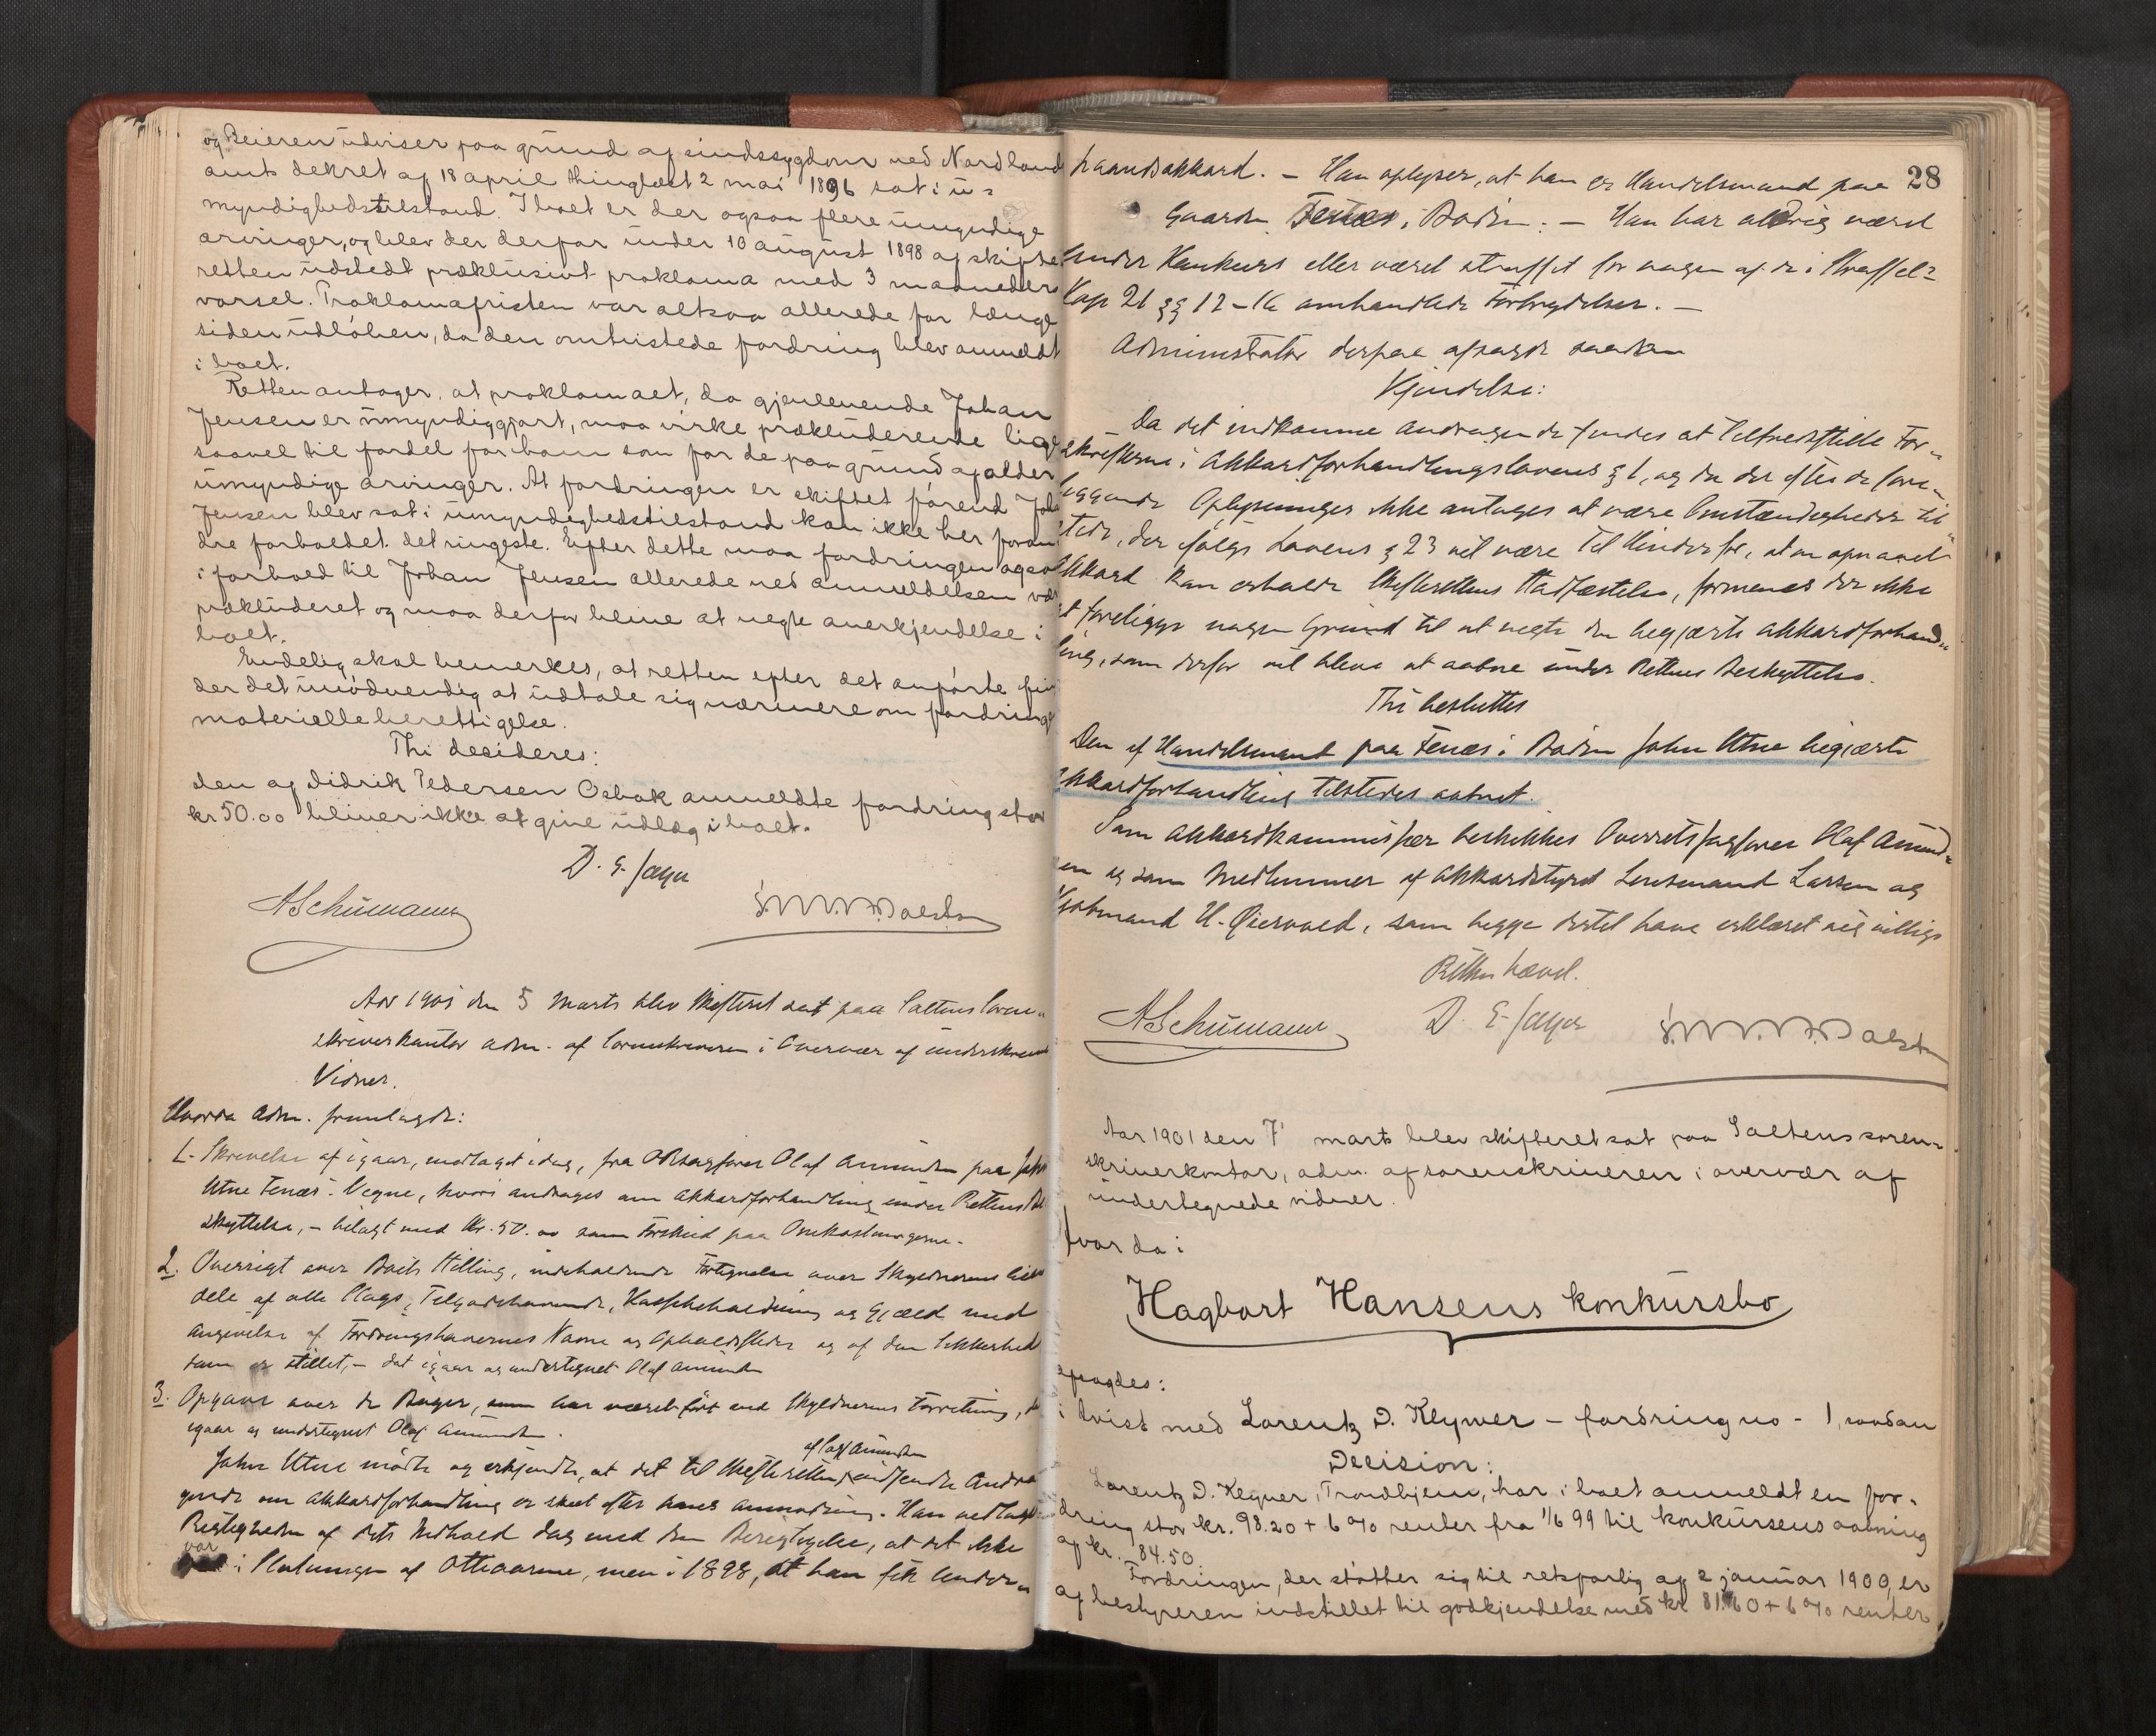 og Beieren udviser paa grund af sindssygdom ved Nordland
amts dekret af 18 april thinglæst 2 mai 1896 sat i u=
myndighedstilstand. I boet er der ogsaa flere umyndige
arvinger, og blev der derfor under 10 august 1898 af skifte
retten udstedt præklusivt proklama med 3 maaneders
varsel. Proklamafristen var altsaa allerede for længe
siden udløben, da den omtvistede fordring blev anmeldt
i boet.
Retten antager, at proklamaet, da gjenlevende Johan
Jensen er umyndiggjort, maa virke prækluderende lige
saavel til fordel for ham som for de paa grund af alder
umyndige arvinger. At fordringen er skiftet førend Joh
Jensen blev sat i umyndighedstilstand kan ikke her foran
dre forholdet det ringeste. Efter dette maa fordringen ogsaa
i forhold til Johan Jensen allerede ved anmeldelsen vær
prækluderet og maa derfor blive at negte anerkjendelse i
boet.
Endelig skal bemerkes, at retten efter det anførte fin
der det unødvendig at udtale sig nærmere om fordringe
materielle berettigelse.
Thi desideres:
den af Didrik Pedersen Osbak anmeldte fordring stor
kr 50.00 bliver ikke at give udlæg i boet.
D. E. Jager
ASchumann
Aar 1901 den 5 Marts blev Skifteret sat paa Saltens Soren=
skriverkontor adm. af Sorenskriveren i Overvær af underskrevne
Vidner.
Hvorda Adm. fremlagde:
1. Skrivelse af igaar, modtaget idag, fra ORsagfører Olaf Amundsen paa John
Utne Fenæs' Vegne, hvori andrages om Akkordforhandling under Rettens Be
skyttelse, – bilagt med Kr. 50.00 som Forskud paa Omkostningerne.
2. Oversigt over Boets Stilling, indeholdende Fortegnelse over Skyldnerens Eien
dele af alle Slags, Tilgodehavende, Kassebeholdning og Gjæld med
Angivelse af Fordringshavernes Navne og Opholdssteder og af den Sikkerhed
som er stillet, – dat igaar og undertegnet Olaf Amundsen
3. Opgave over de Bøger, som har været ført ved Skyldnerens Forretning, d
igaar og undertegnet Olaf Amundsen.
af Olaf Amundsen
John Utne mødte og erkjendte, at det til Skifteretten indsendte Andra
gende om Akkordforhandling er skeet efter hans Anmodning. Han vedtog
Rigtigheden af dets Indhold dog med den Berigtigelse, at det ikke
var i Slutningen af Ottiaarene, men i 1898, at han fik Under=
28
haandsakkord. – Han oplyser, at han er Handelsmand paa
Gaarden Fenæs i Bodin. – Han har aldrig været
under Konkurs eller været straffet for nogen af de i Straffel:
Kap 21 §§ 12–16 omhandlede Forbrydelser. –
Administrator derpaa afsagde saadan
Kjendelse:
Da det indkomne Andragende findes at tilfredsstille For=
skrifterne i Akkordforhandlingslovens § 1, og da der efter de fore=
liggende Oplysninger ikke antages at være Omstændigheder til
stede, der ifølge Lovens § 23 vil være til Hinder for, at en opnaaet
Akkord kan erholde Skifterettens Stadfæstelse, formenes der ikke
at foreligge nogen Grund til at negte den begjærte Akkordforhand=
ling, som derfor vil blive at aabne under Rettens Beskyttelse.
Thi besluttes
Den af Handelsmand paa Fenæs i Bodin John Utne begjærte
Akkordforhandling tilstedes aabnet.
Som Akkordkommissær beskikkes Overretssagfører Olaf Amund=
sen og som Medlemmer af Akkordstyret Lensmand Larsen og
Kjøbmand H. Qiervold, som begge dertil have erklæret sig villige
Retten hævet.
ASchumann D. E. Jager
Aar 1901 den 7' marts blev skifteret sat paa Saltens soren=
skriverkontor, adm. af sorenskriveren i overvær af
undertegnede vidner.
Hvor da i
Hagbart Hansens konkursbo
afsagdes:
i tvist med Lorentz D. Klywer – fordring no – 1, saadan
Decision:
Lorentz D. Klywer, Trondhjem, har i boet anmeldt en for=
dring stor kr. 98.20 + 6 % renter fra 1/6 99 til konkursens aabning
af kr. 84.50.
Fordringen, der støtter sig til retsforlig af 2 januar 1900, er
af bestyreren indstillet til godkjendelse med kr 81.60 + 6 % renter